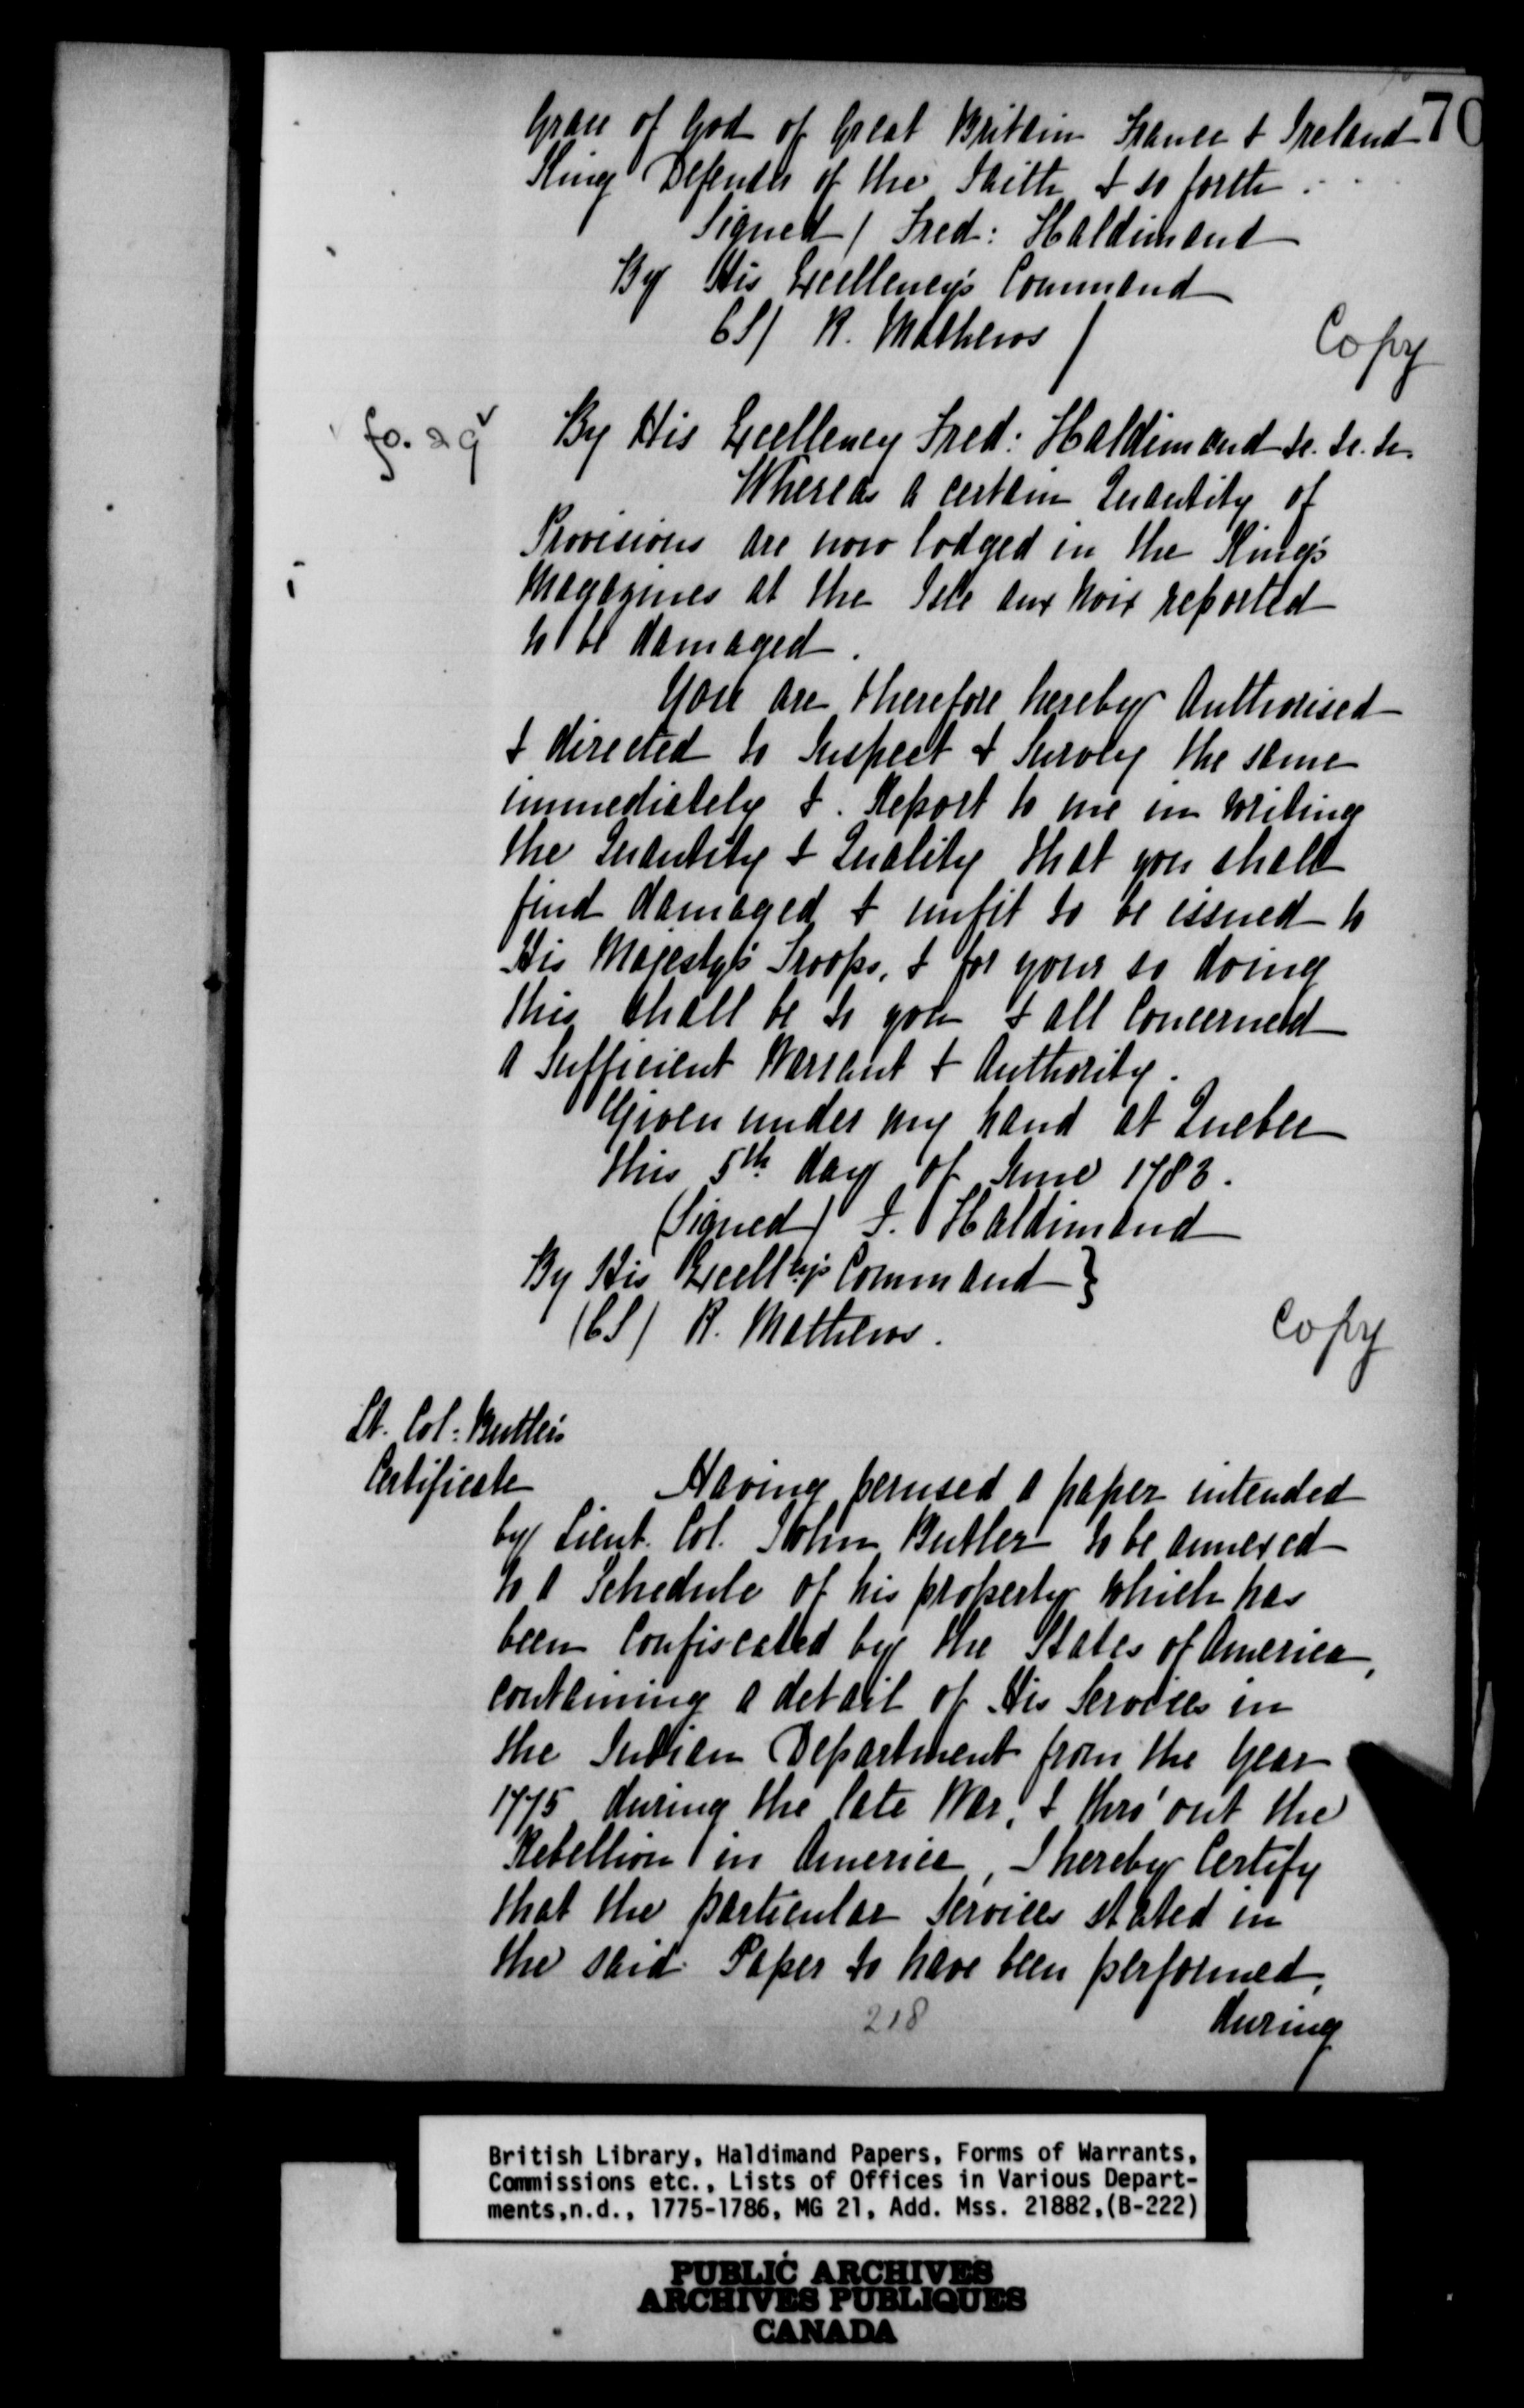 70
Grace of God of Great Britain France & Ireland
King Defender of the Faith & so forth . . .
Signed / Fred: Haldimand
By His Excellency's Command
CS/ R. Mathews /
Copy
fo. 29v
By His Excellency Fred: Haldimand &c. &c. &c.
Whereas a certain Quantity of
Provisions are now lodged in the King's
Magazines at the Isle aux Noix reported
to be damaged.
You are therefore hereby Authorised
& directed to Inspect & Survey the same
immediately & Report to me in Writing
the Quantity & Quality that you shall
find damaged & unfit to be issued to
His Majesty's Troops, & for your so doing
this shall be to you & all Concerned
a Sufficient Warrant & Authority.
Given under my hand at Quebec
this 5th day of June 1783.
(Signed) F. Haldimand
By His Excellcy's Command }
(CS) R. Mathews.
Copy
Lt. Col: Butler's
Certificate
Having perused a paper intended
by Lieut. Col. John Butler to be annexed
to a Schedule of his property which has
been Confiscated by the States of America,
containing a detail of His Services in
the Indian Department from the Year
1775 during the late War, & thro' out the
Rebellion in America, I hereby Certify
that the particular Services stated in
the said Paper to have been performed,
during
218
British Library, Haldimand Papers, Forms of Warrants,
Commissions etc., Lists of Offices in Various Depart-
ments,n.d., 1775-1786, MG 21, Add. Mss. 21882,(B-222)
PUBLIC ARCHIVES
ARCHIVES PUBLIQUES
CANADA